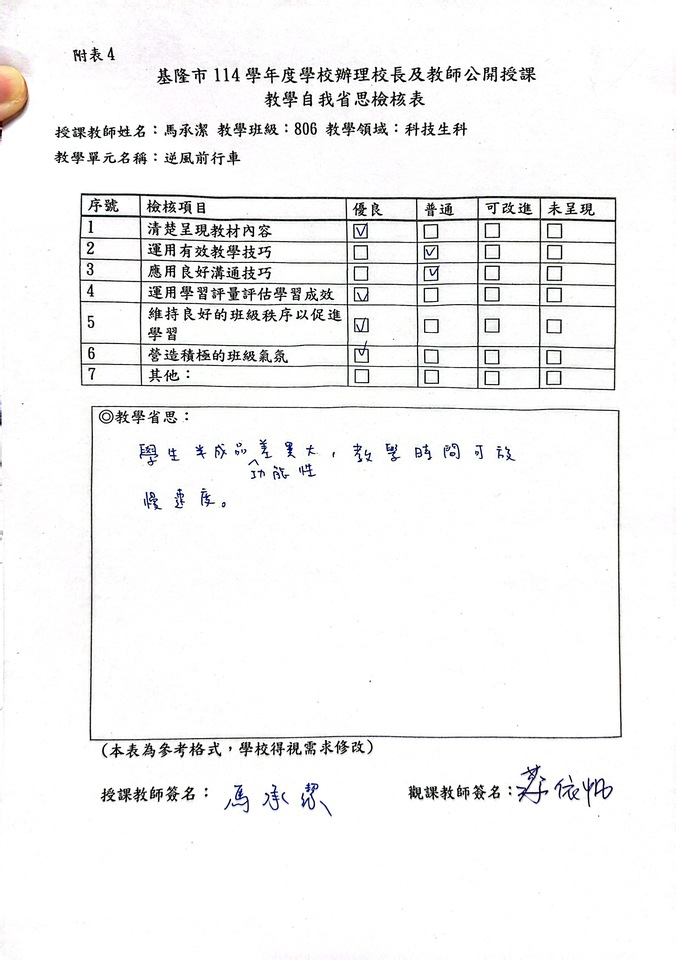 附表4
基隆市114學年度學校辦理校長及教師公開授課
教學自我省思檢核表
授課教師姓名：馬承潔 教學班級：806 教學領域：科技生科
教學單元名稱：逆風前行車
序號 檢核項目 優良 普通 可改進 未呈現
1 清楚呈現教材內容 ☑ ☐ ☐ ☐
2 運用有效教學技巧 ☐ ☑ ☐ ☐
3 應用良好溝通技巧 ☐ ☑ ☐ ☐
4 運用學習評量評估學習成效 ☑ ☐ ☐ ☐
5 維持良好的班級秩序以促進
學習 ☑ ☐ ☐ ☐
6 營造積極的班級氣氛 ☑ ☐ ☐ ☐
7 其他： ☐ ☐ ☐ ☐
◎教學省思：
學生半成品功能性差異大，教學時間可放
慢速度。
(本表為參考格式，學校得視需求修改)
授課教師簽名：馬承潔 觀課教師簽名：蔡依帆